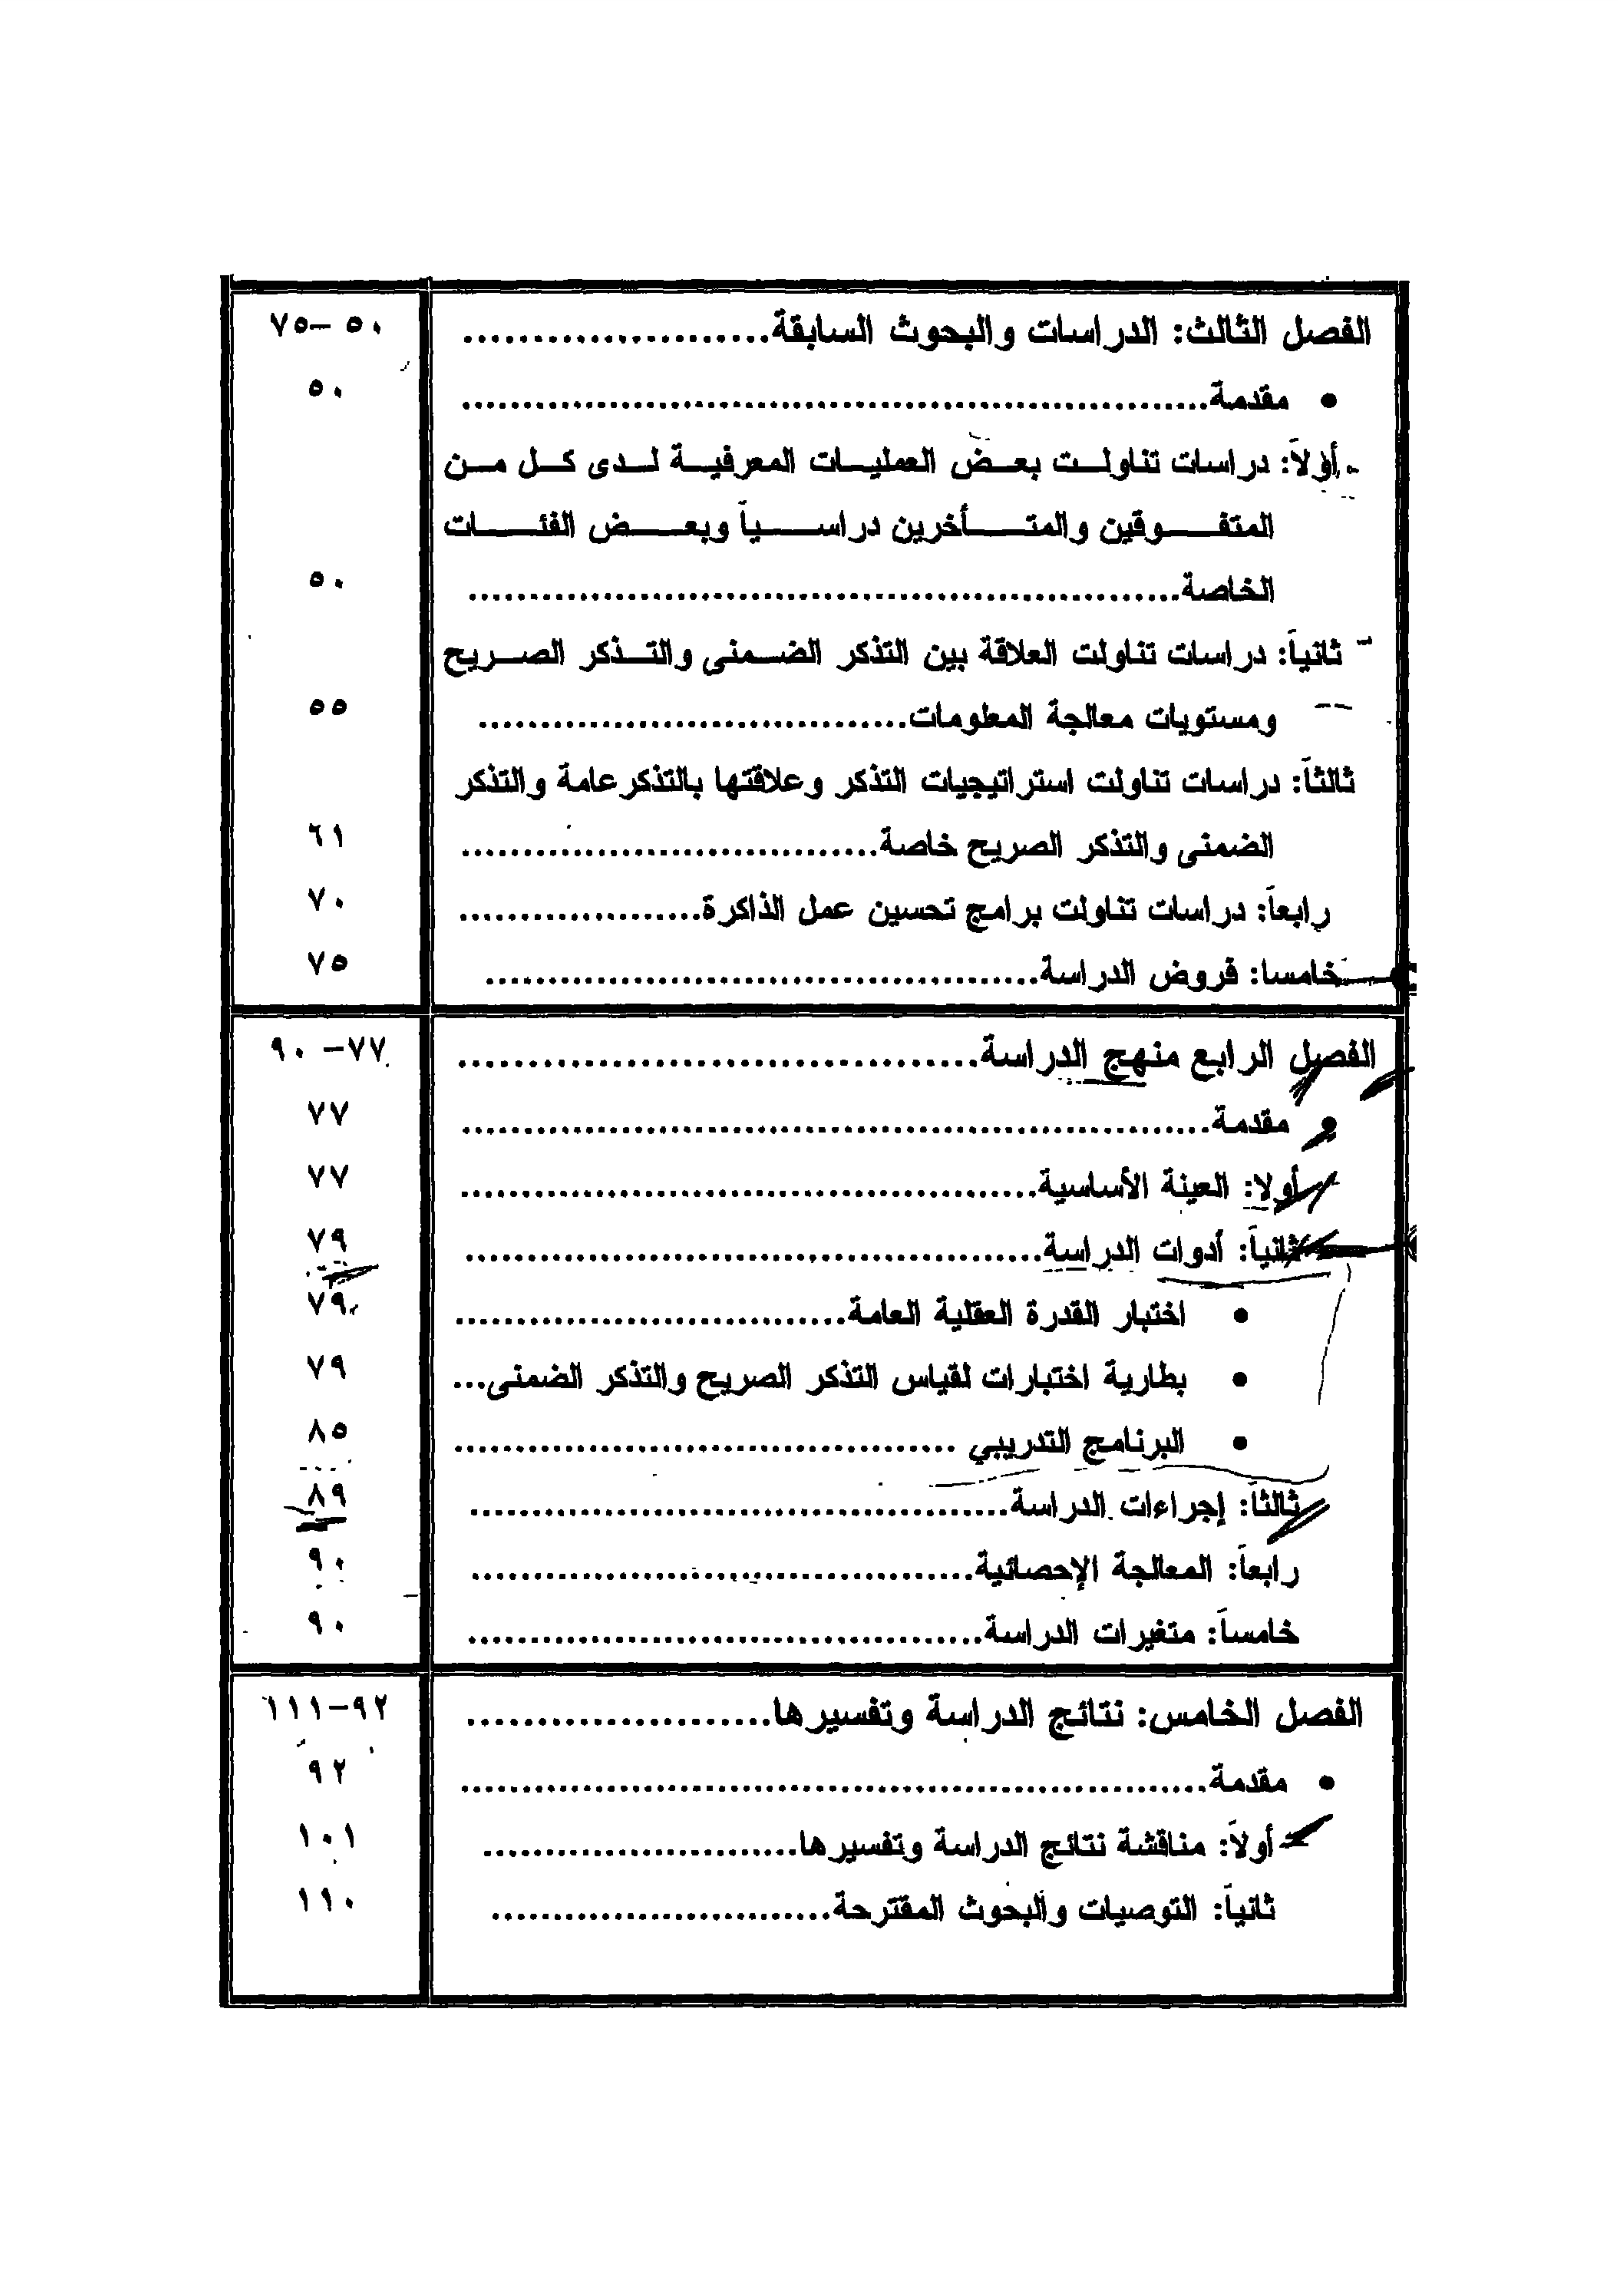 الفصل الثالث: الدراسات والبحوث السابقة...................... ٥٠-٧٥
• مقدمة............................................................ ٥٠
أولاً: دراسات تناولت بعض العمليات المعرفية لدى كل من
المتفوقين والمتأخرين دراسياً وبعض الفئات
الخاصة......................................................... ٥٠
ثانياً: دراسات تناولت العلاقة بين التذكر الضمنى والتذكر الصريح
ومستويات معالجة المعلومات................................... ٥٥
ثالثاً: دراسات تناولت استراتيجيات التذكر وعلاقتها بالتذكر عامة والتذكر
الضمنى والتذكر الصريح خاصة.................................. ٦١
رابعاً: دراسات تناولت برامج تحسين عمل الذاكرة.................... ٧٠
خامسا: فروض الدراسة............................................. ٧٥
الفصل الرابع منهج الدراسة...................................... ٧٧-٩٠
• مقدمة............................................................ ٧٧
أولا: العينة الأساسية............................................... ٧٧
ثانياً: أدوات الدراسة............................................... ٧٩
• اختبار القدرة العقلية العامة................................ ٧٩
• بطارية اختبارات لقياس التذكر الصريح والتذكر الضمنى... ٧٩
• البرنامج التدريبي ......................................... ٨٥
ثالثاً: إجراءات الدراسة............................................ ٨٩
رابعاً: المعالجة الإحصائية......................................... ٩٠
خامساً: متغيرات الدراسة.......................................... ٩٠
الفصل الخامس: نتائج الدراسة وتفسيرها...................... ٩٢-١١١
• مقدمة............................................................ ٩٢
أولاً: مناقشة نتائج الدراسة وتفسيرها......................... ١٠١
ثانياً: التوصيات والبحوث المقترحة............................ ١١٠